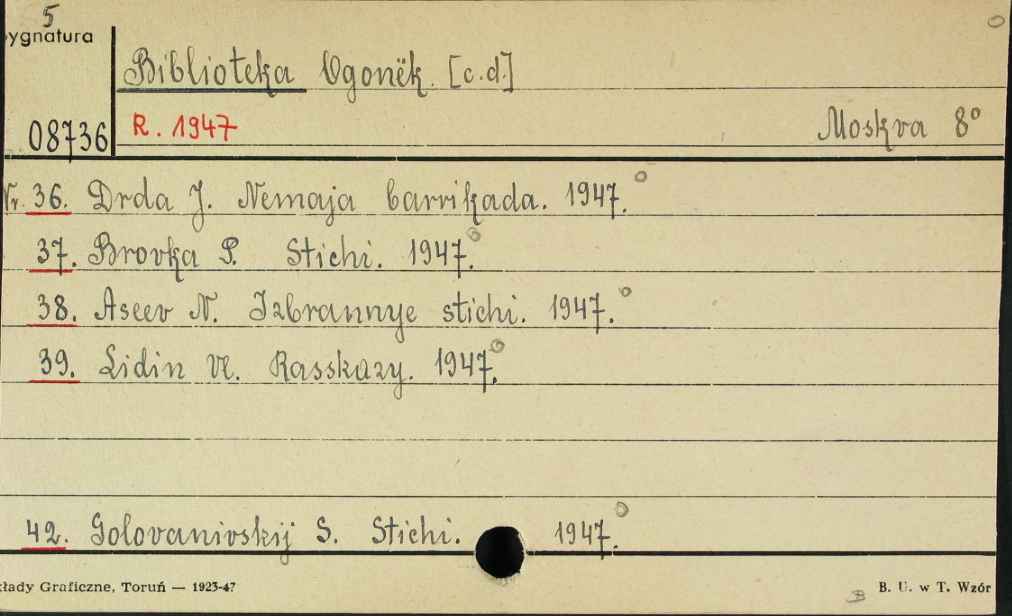 5
ygnatura
Biblioteka Ogonëk. [c.d.]
08736 R. 1947 Moskva 8°
Nr. 36. Drda J. Nemaja barrikada. 1947.
37. Brovka P. Stichi. 1947.
38. Aseev N. Izbrannye stichi. 1947.
39. Lidin Vl. Rasskazy. 1947.
42. Golovanivskij S. Stichi. 1947.
kłady Graficzne, Toruń — 1923-47 B. U. w T. Wzór
B